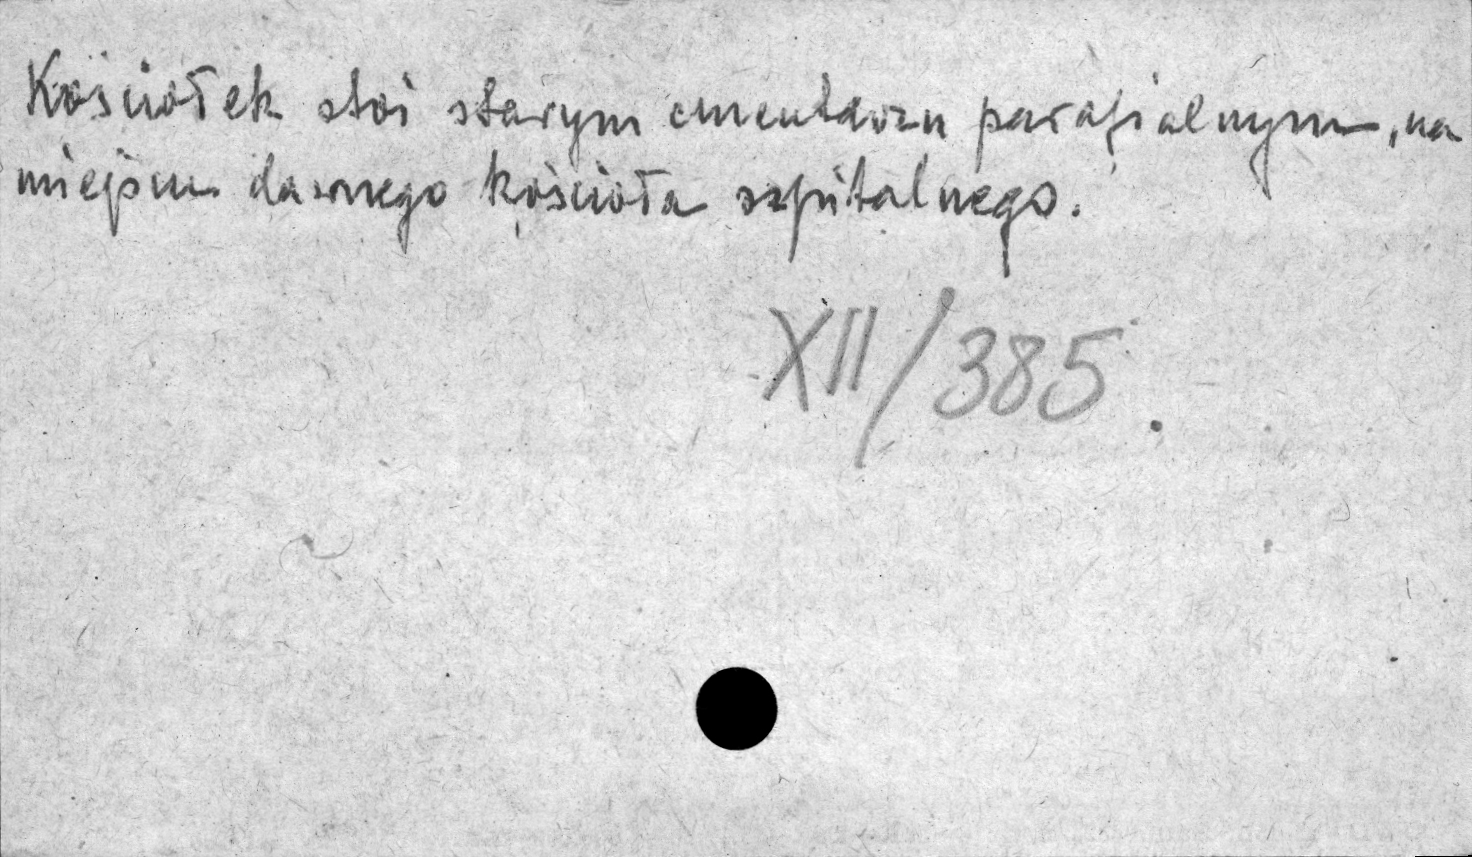 Kościołek stoi starym cmentarzu parafialnym, na
miejscu dawnego kościoła szpitalnego.
XII/385.